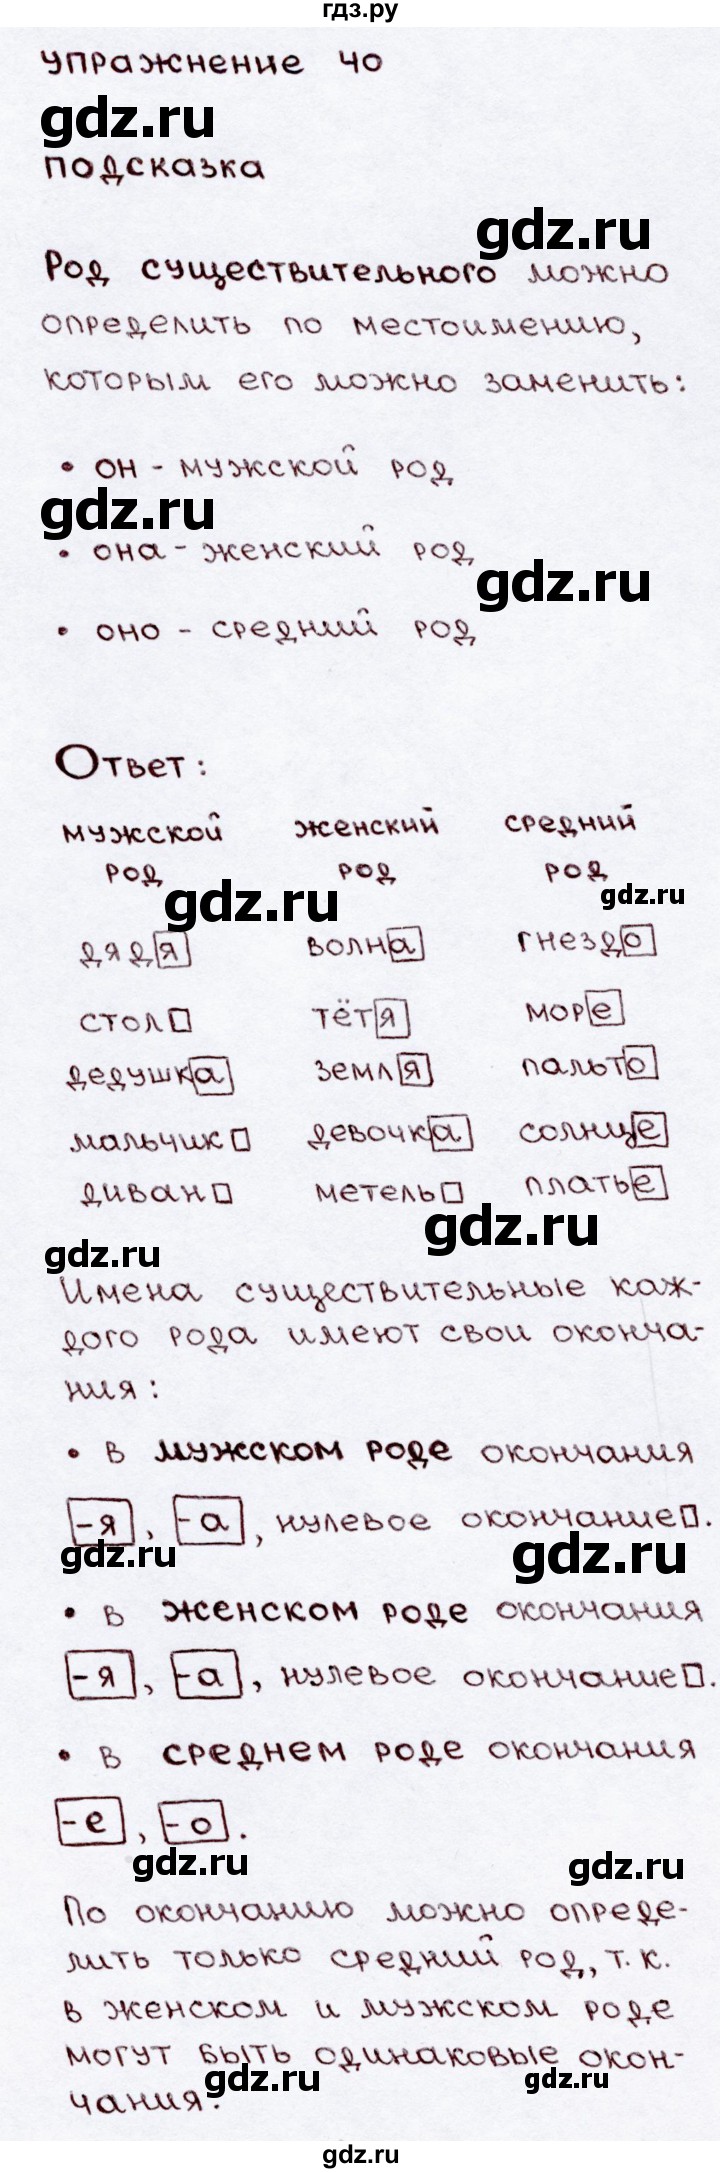 гдз.ру
упражнение 40
gdz.ru
подсказка
gdz.ru
Род существительного можно
определить по местоимению,
которым его можно заменить:
• он - мужской род
gdz.ru
• она - женский род
gdz.ru
• оно - средний род
Ответ:
мужской женский средний
род род род
gdz.ru gdz.ru
дядя волна гнездо
стол тётя море
дедушка земля пальто
мальчик девочка солнце
диван метель платье
gdz.ru
gdz.ru
Имена существительные каж-
дого рода имеют свои оконча-
ния:
• в мужском роде окончания
-я, -а, нулевое окончание□.
gdz.ru gdz.ru
• в женском роде окончания
-я, -а, нулевое окончание□.
• в среднем роде окончания
-е, -о.
gdz.ru gdz.ru
По окончанию можно опреде-
лить только средний род, т.к.
в женском и мужском роде
могут быть одинаковые окон-
gdz.ru gdz.ru
чания.
gdz.ru